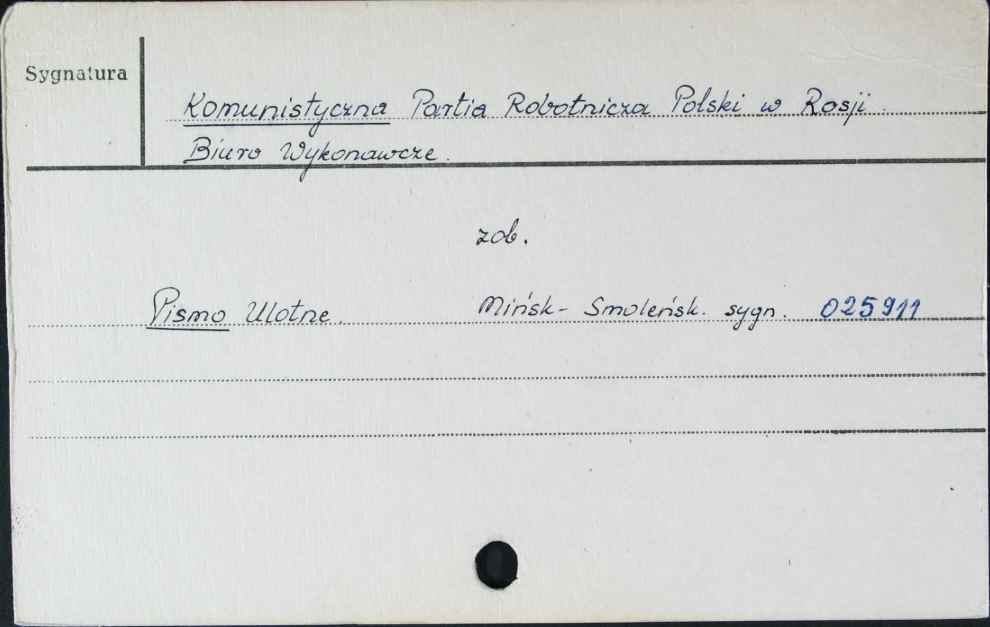 Sygnatura
Komunistyczna Partia Robotnicza Polski w Rosji.
Biuro Wykonawcze.
zob.
Pismo Ulotne. Mińsk - Smoleńsk. sygn. 025911